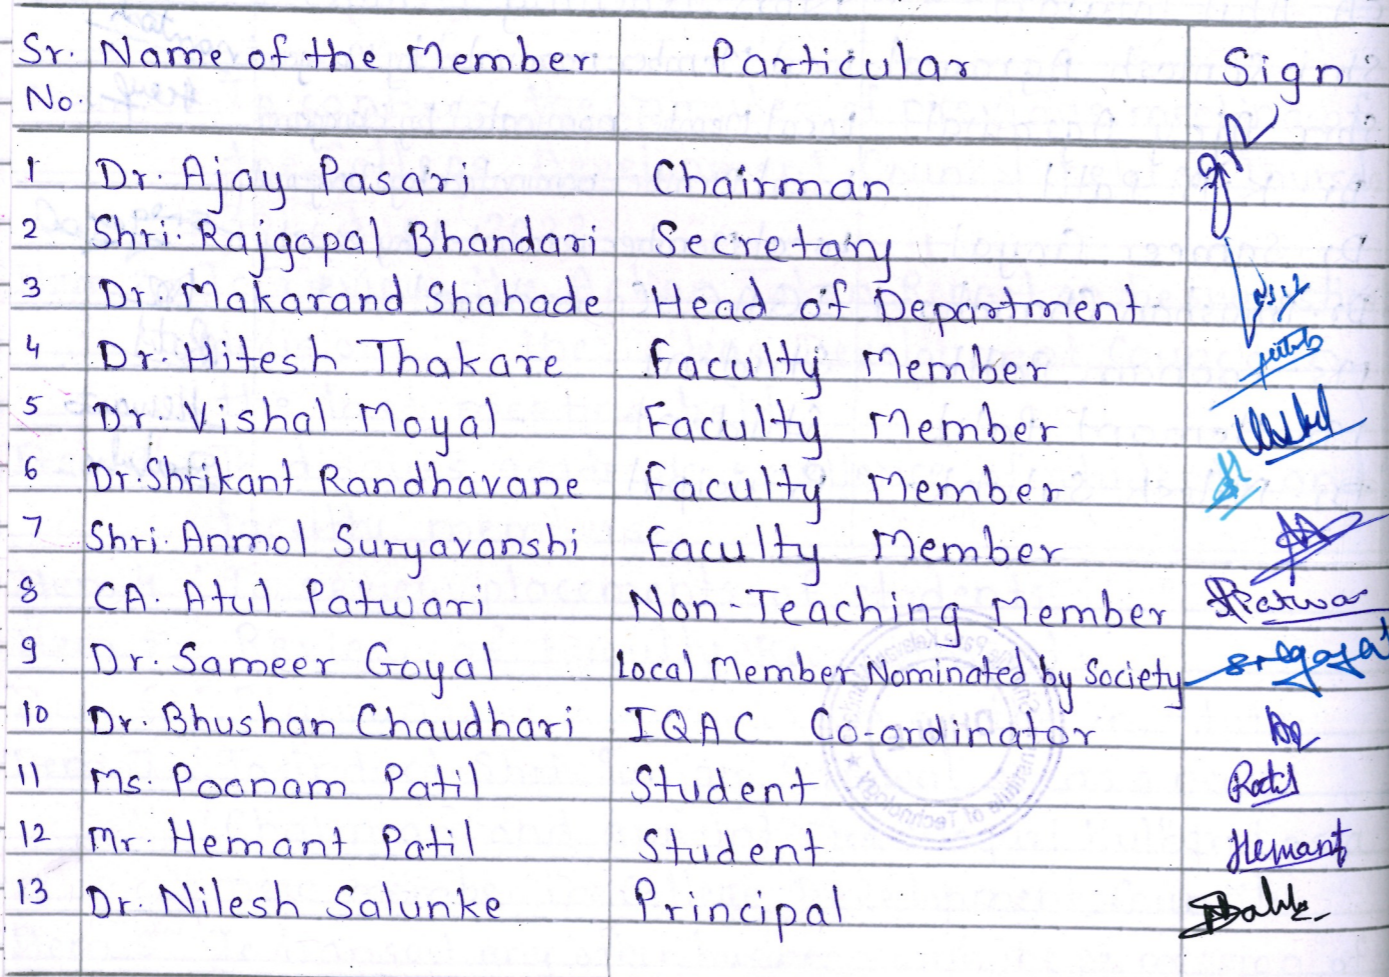 Sr. No. Name of the Member Particular Sign
1 Dr. Ajay Pasari Chairman
2 Shri. Rajgopal Bhandari Secretary
3 Dr. Makarand Shahade Head of Department
4 Dr. Hitesh Thakare Faculty Member
5 Dr. Vishal Moyal Faculty Member
6 Dr. Shrikant Randhavane Faculty Member
7 Shri. Anmol Suryavanshi Faculty Member
8 CA. Atul Patwari Non-Teaching Member
9 Dr. Sameer Goyal Local Member Nominated by Society
10 Dr. Bhushan Chaudhari IQAC Co-ordinator
11 Ms. Poonam Patil Student
12 Mr. Hemant Patil Student Hemant
13 Dr. Nilesh Salunke Principal